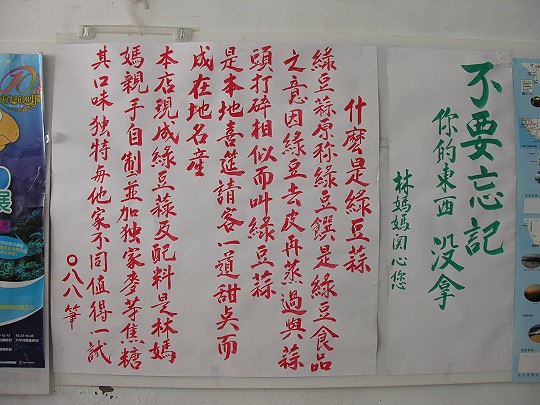 不要忘記
你的東西 没拿
林媽媽関心您
什麼是綠豆蒜
綠豆蒜原称綠豆饌是綠豆食品
之意因綠豆去皮再蒸過與蒜
頭打碎相似而叫綠豆蒜
是本地喜進請客一道甜点而
成在地名産
本店現成綠豆蒜及配料是林媽
媽親手自制並加独家麥芽焦糖
其口味独特每他家不同值得一試
〇八八筆
展